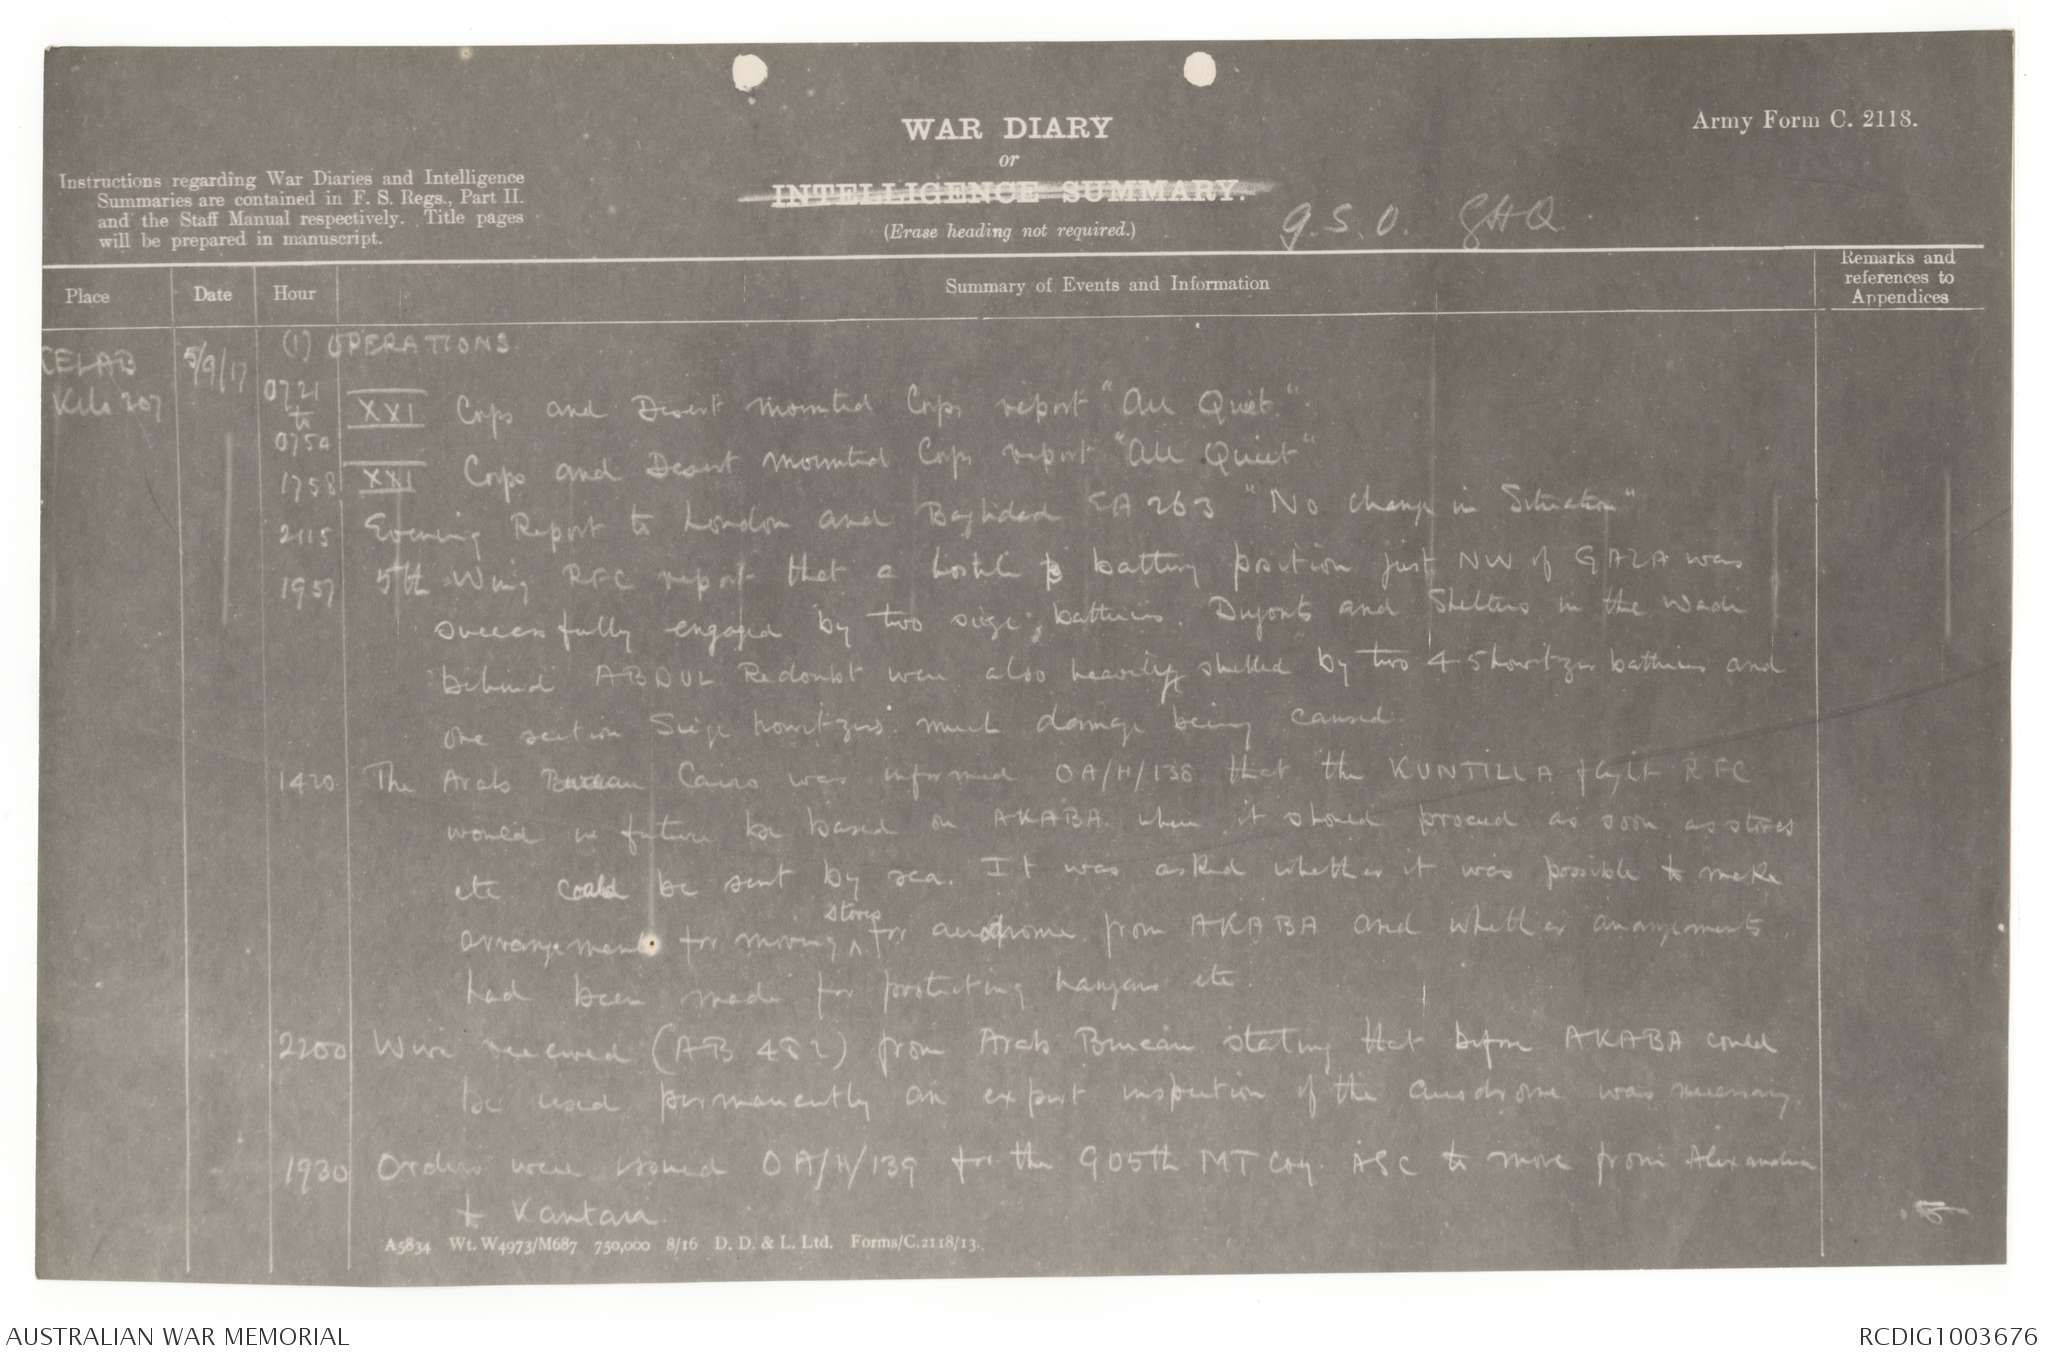 WAR DIARY
or
INTELLIGENCE SUMMARY.
(Erase heading not required.)
Army Form C. 2118.
Instructions regarding War Diaries and Intelligence
Summaries are contained in F. S. Regs., Part II.
and the Staff Manual respectively. Title pages
will be prepared in manuscript.
G.S.O. GHQ
Place Date Hour Summary of Events and Information Remarks and
references to
Appendices
KELAB 5/9/17 (1) OPERATIONS.
Kilo 207
0721 to 0754 XXI Corps and Desert Mounted Corps report "All Quiet."
1758 XXI Corps and Desert Mounted Corps report "All Quiet"
2115 Evening Report to London and Baghdad EA 263 "No change in Situation"
1957 5th Wing RFC report that a hostile battery position just NW of GAZA was
successfully engaged by two siege batteries. Dugouts and Shelters in the Wadi
behind ABDUL Redoubt were also heavily shelled by two 4.5 howitzer batteries and
one section Siege howitzers much damage being caused
1420 The Arab Bureau Cairo was informed OA/H/138 that the KUNTILLA flight RFC
would in future be based on AKABA where it should proceed as soon as stores
etc could be sent by sea. It was asked whether it was possible to make
arrangements for moving stores for aerodrome from AKABA and whether arrangements
had been made for protecting hangars etc.
2200 Wire received (AB 482) from Arab Bureau stating that before AKABA could
be used permanently an expert inspection of the aerodrome was necessary.
1930 Orders were issued OA/H/139 for the 905th MT Coy. ASC to move from Alexandria
to Kantara.
A5834 Wt. W4973/M687 750,000 8/16 D. D. & L. Ltd. Forms/C.2118/13.
AUSTRALIAN WAR MEMORIAL
RCDIG1003676